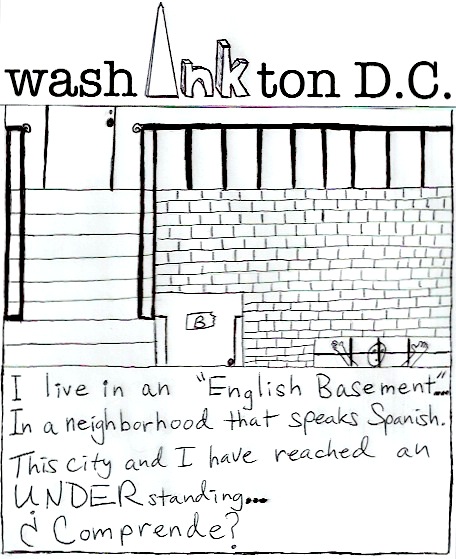 washInkton D.C.
B
I live in an "English Basement"...
In a neighborhood that speaks Spanish.
This city and I have reached an
UNDERstanding...
¿Comprende?